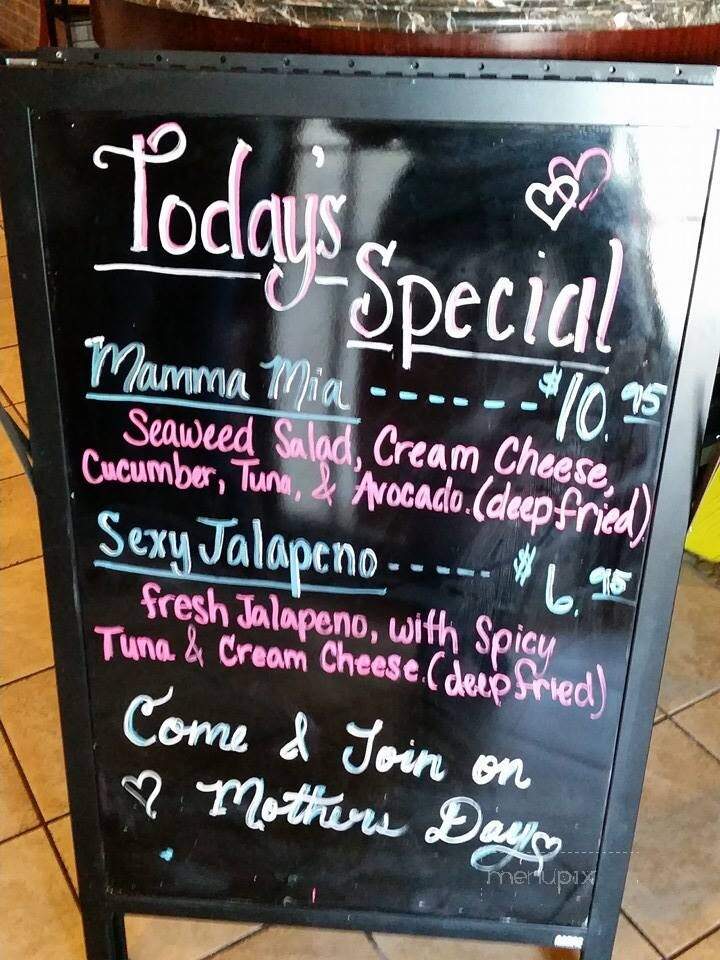 Today's
Special
Mamma Mia ------ $10.95
Seaweed Salad, Cream Cheese,
Cucumber, Tuna, & Avocado. (deep fried)
Sexy Jalapeno ----- $6.95
fresh Jalapeno, with Spicy
Tuna & Cream Cheese. (deep fried)
Come & Join on
Mothers Day
menupix